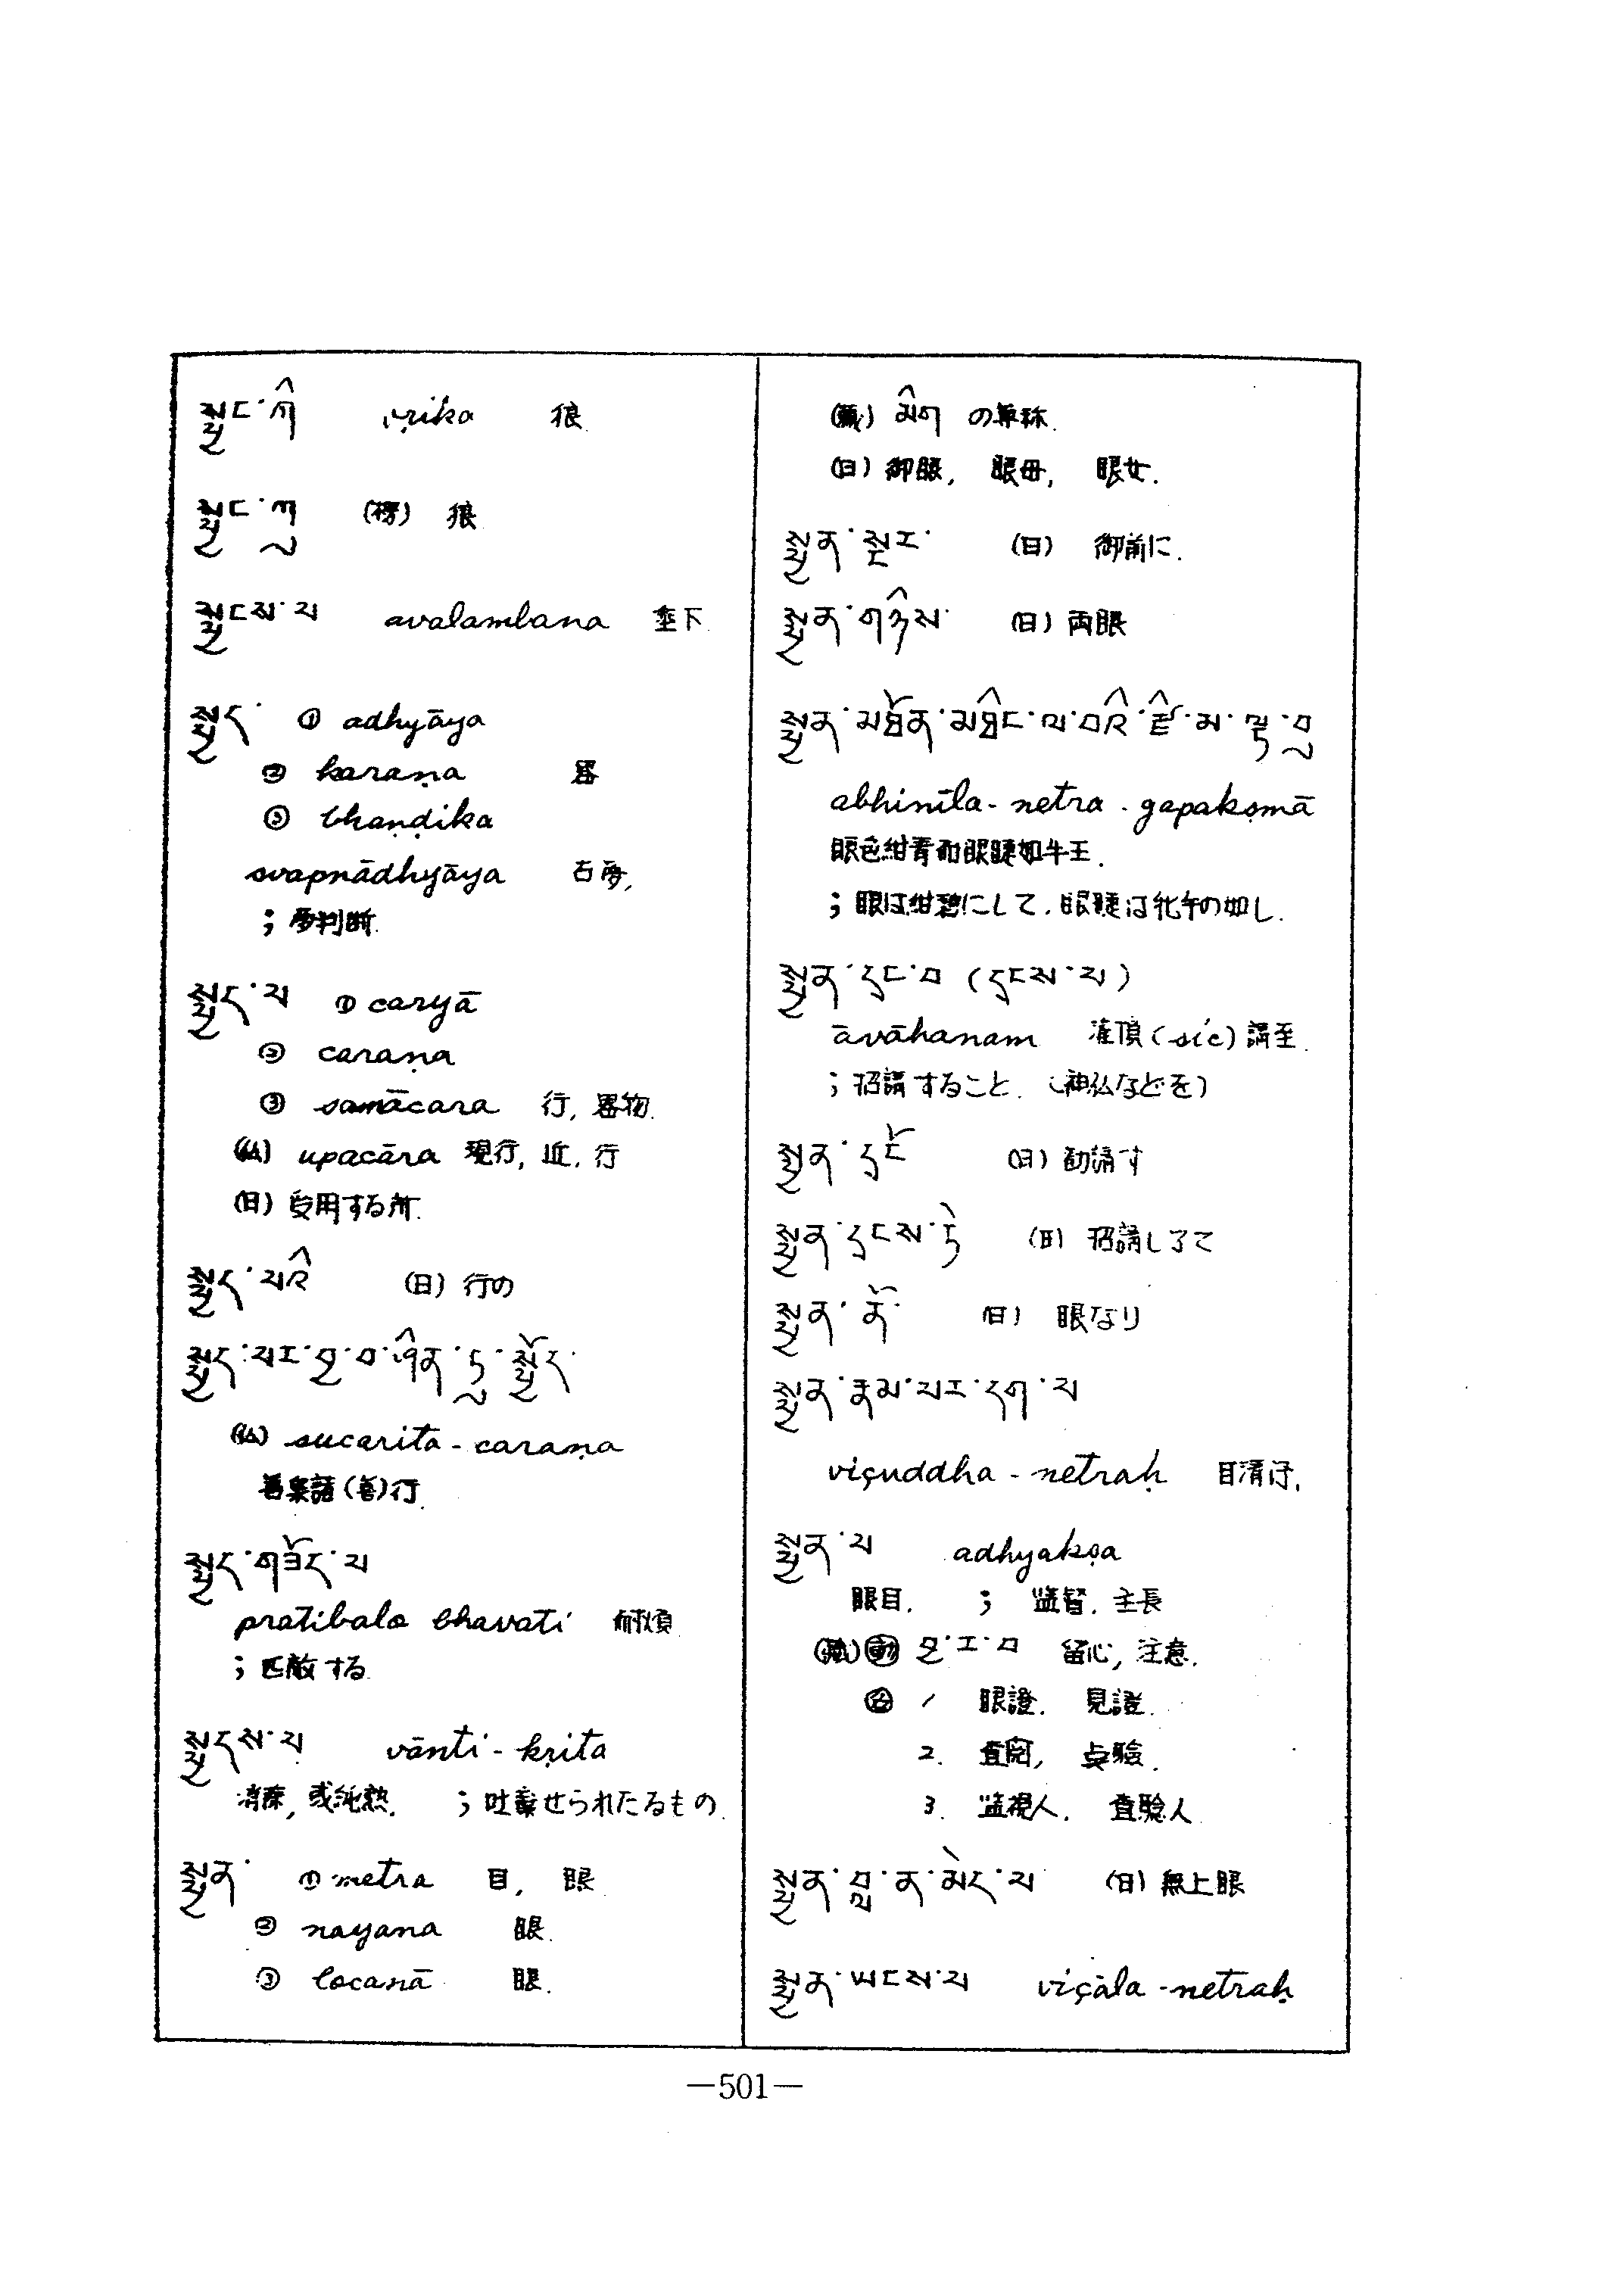 སྤྱང་ཀི vṛika 狼
སྤྱང་ཀུ (楞) 狼
སྤྱངས་པ avalambana 垂下
སྤྱད་ ① adhyāya
② karaṇa 畧
③ bhaṇḍika
svapnādhyāya 占夢,
; 夢判断.
སྤྱད་པ ① caryā
② caraṇa
③ samācara 行, 畧物.
(仏) upacāra 現行, 近, 行
(日) 受用する所.
སྤྱད་པའི (日) 行の
སྤྱད་པར་བྱ་བ་ཤིན་ཏུ་སྤྱོད་
(仏) sucarita-caraṇa
善集諸(善)行.
སྤྱད་བཟོད་པ
pratibalo bhavati 耐煩
; 匹敵する.
སྤྱདས་པ vānti-kṛita
消除, 或純熟. ; 吐棄せられたるもの.
སྤྱན་ ① metra 目, 眼
② nayana 眼.
③ locanā 眼.
(藏) མིག の尊称.
(日) 御眼, 眼母, 眼女.
སྤྱན་སྔར་ (日) 御前に.
སྤྱན་གཉིས་ (日) 両眼
སྤྱན་མཐོན་མཐིང་ལ་བའི་རྫི་མ་ལྟ་བུ
abhinīla-netra-gapakṣmā
眼色紺青而眼睫如牛王.
; 眼は紺碧にして, 眼睫は牝牛の如し.
སྤྱན་དྲང་བ (དྲངས་པ)
āvāhanam 灌頂(sic)請至.
; 招請すること. (神仏などを)
སྤྱན་དྲོང (日) 勧請す
སྤྱན་དྲངས་ཏེ (日) 招請し了て
སྤྱན་ནོ་ (日) 眼なり
སྤྱན་རྣམ་པར་དག་པ
viçuddha-netraḥ 目清浄,
སྤྱན་པ adhyakṣa
眼目. ; 監督, 主長
(藏) 動 བྱ་ར་བ 留心, 注意.
名 1 眼證. 見證.
2. 査閲, 点驗.
3. 監視人. 査驗人
སྤྱན་བླ་ན་མེད་པ (日) 無上眼
སྤྱན་ཡངས་པ viçāla-netraḥ
—501—